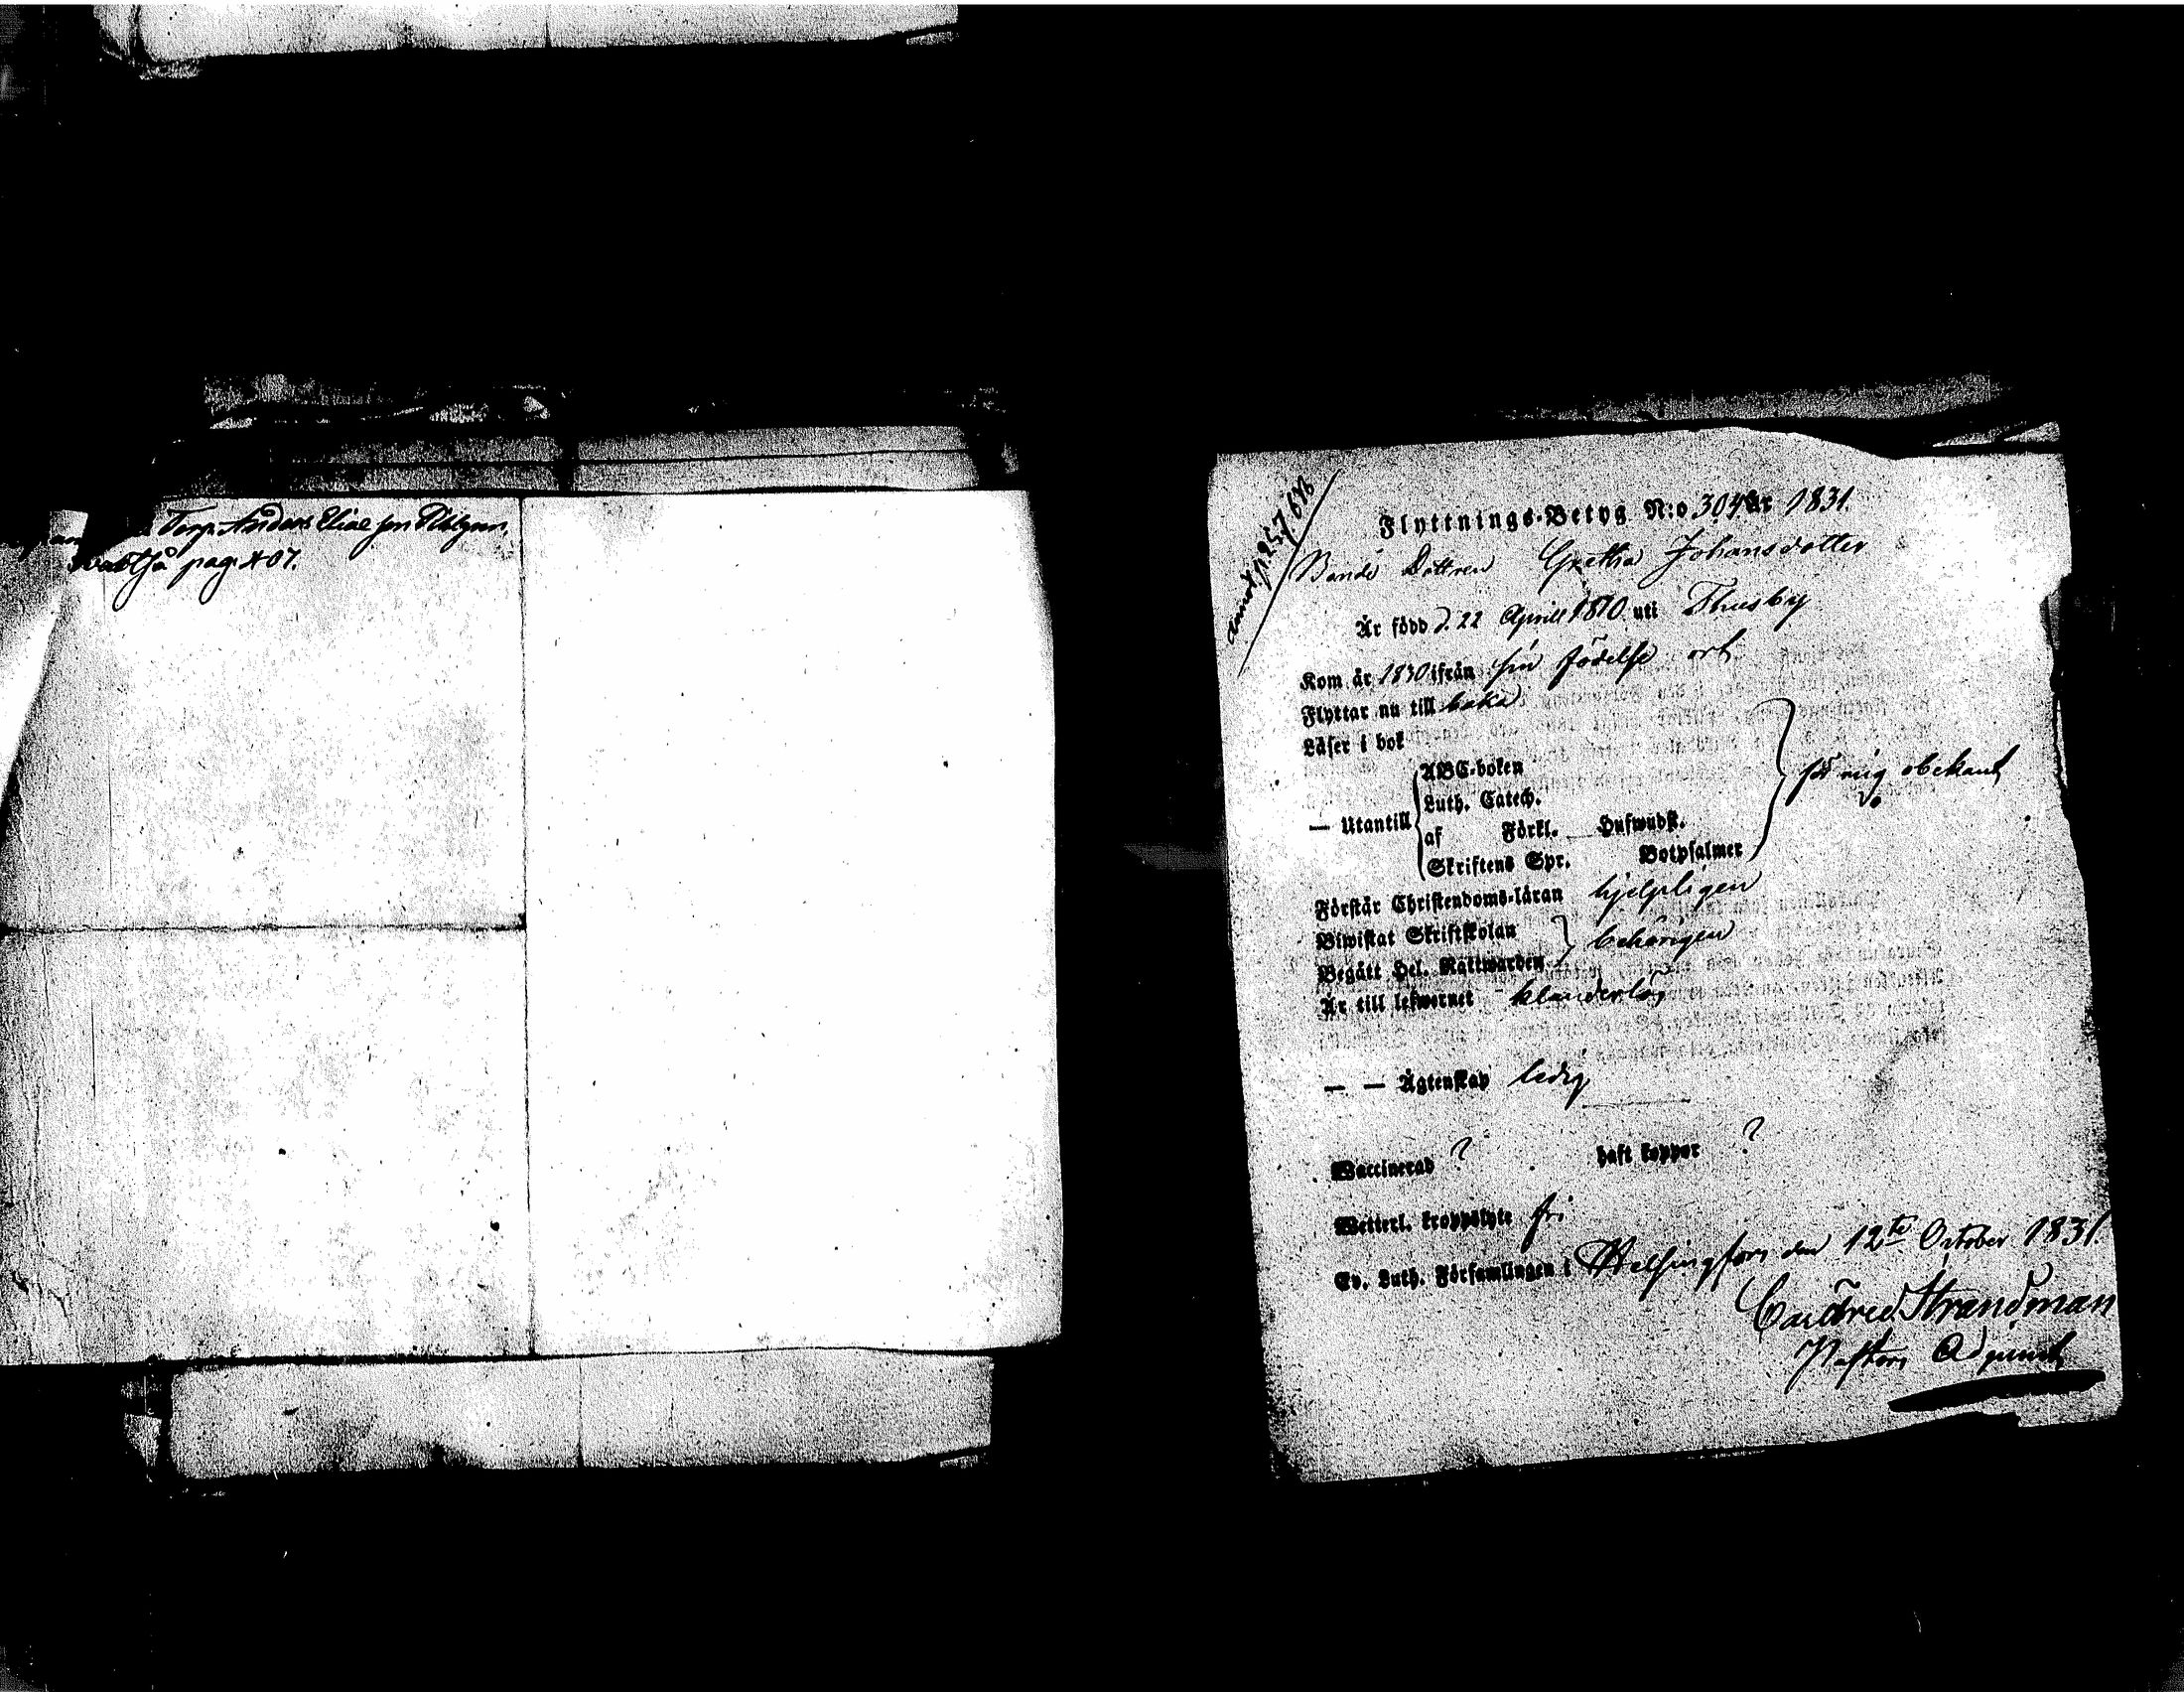 Torp. Anders Elias son
pag. 407.
Flyttnings-Betyg N:o 304 År 1831.
Bonde Dottren Gretha Johansdotter
Är född d. 22 Aprill 1810 uti Thusby
Kom år 1830 ifrån sin födelse ort
Flyttar nu till baka
Läser i bok
ABC-boken
Luth. Catech.
för mig obekant
— Utantill
af Förkl. Hufwudst.
Skriftens Spr. Botpsalmer
Förstår Christendoms-låran hjelpligen
Biwistat Skriftskolan
behörigen
Begått Hel. Nattwarden
Är till lefwernet klanderlös
— — Ägtenskap ledig
Waccinerad ? haft koppor ?
Wetterl. kroppslyte fri
Ev. Luth. Församlingen i Helsingfors den 12te October 1831.
Carl Fred. Strandman
Pastors Adjunct